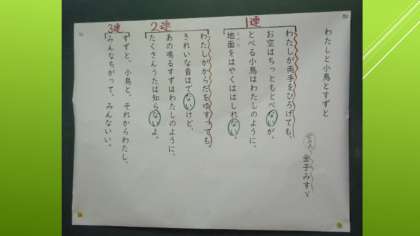 わたしと小鳥とすずと
金子みすゞ
1連
わたしが両手をひろげても、
お空はちっともとべないが、
とべる小鳥はわたしのように、
地面をはやくははしれない。
2連
わたしがからだをゆすっても、
きれいな音はでないけど、
あの鳴るすずはわたしのように、
たくさんうたは知らないよ。
3連
すずと、小鳥と、それからわたし、
みんなちがって、みんないい。